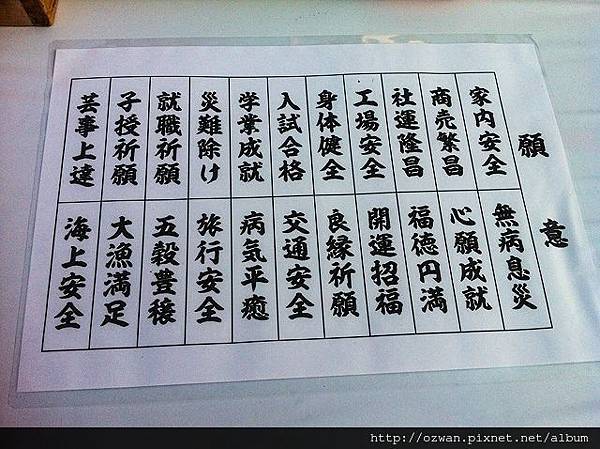 願意
家内安全
商売繁昌
社運隆昌
工場安全
身体健全
入試合格
学業成就
災難除け
就職祈願
子授祈願
芸事上達
無病息災
心願成就
福徳円満
開運招福
良縁祈願
交通安全
病気平癒
旅行安全
五穀豊穣
大漁満足
海上安全
http://ozwan.pixnet.net/album